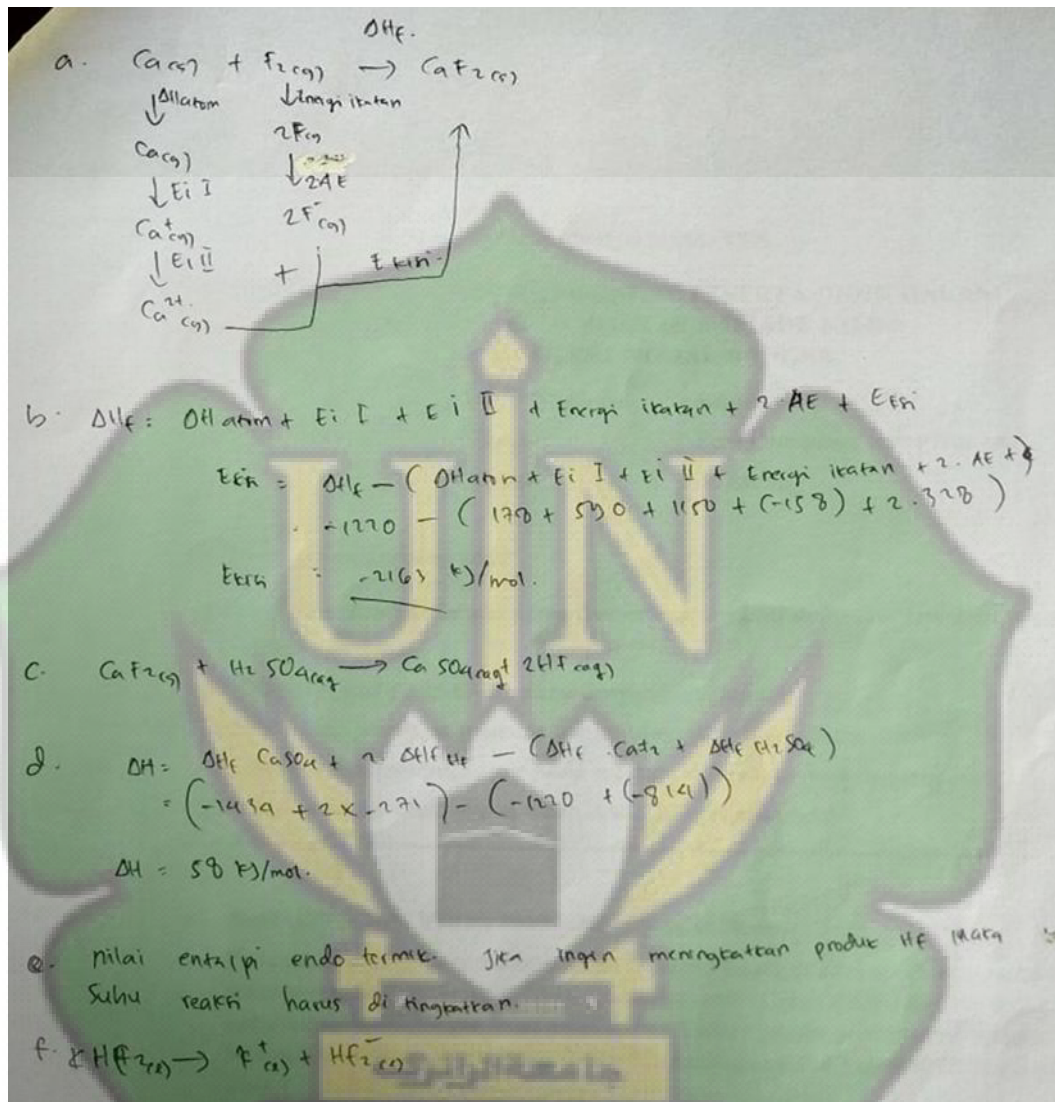 ΔHf.
a. Ca(s) + F2(g) → CaF2(s)
↓ΔHatom ↓Energi ikatan
Ca(g) 2F(g)
↓Ei I ↓2AE
Ca+(g) 2F-(g)
↓Ei II + E kisi.
Ca2+(g)
b. ΔHf = ΔH atom + Ei I + Ei II + Energi ikatan + 2 AE + E kisi
E kisi = ΔHf - (ΔHatom + Ei I + Ei II + Energi ikatan + 2. AE +)
= -1220 - (178 + 590 + 1150 + (-158) + 2.328)
E kisi = -2163 kJ/mol.
c. CaF2(s) + H2SO4(aq) → CaSO4(aq) + 2HF(aq)
d. ΔH = ΔHf CaSO4 + 2 ΔHf HF - (ΔHf CaF2 + ΔHf H2SO4)
= (-1434 + 2x-271) - (-1220 + (-814))
ΔH = 58 kJ/mol.
e. nilai entalpi endotermik. Jika ingin meningkatkan produk HF maka
Suhu reaksi harus di tingkatkan.
f. KHF2(l) → K+(l) + HF2-(l)
UIN
جامعة الرانيري